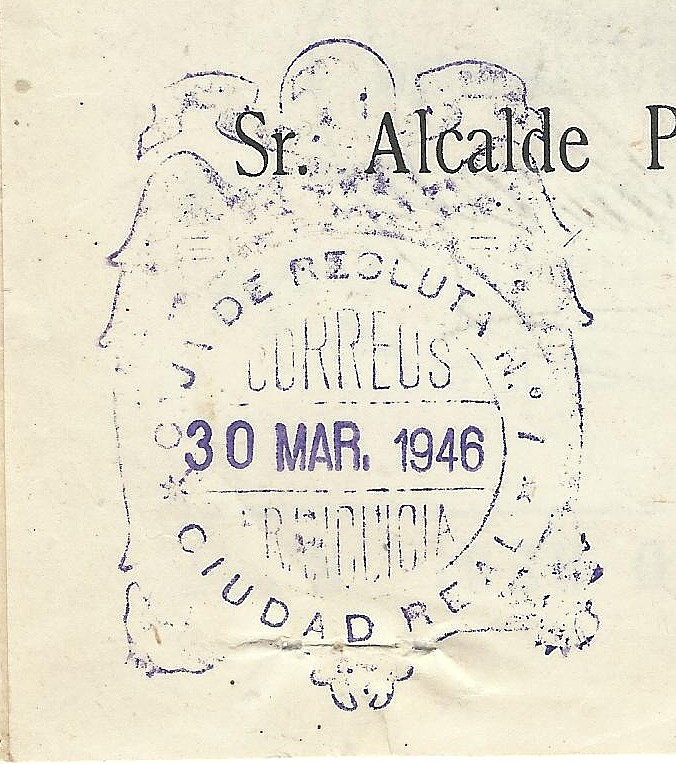 Sr. Alcalde P
CAJA DE RECLUTA N.º 1
CORREOS
30 MAR. 1946
FRANQUICIA
* CIUDAD REAL *